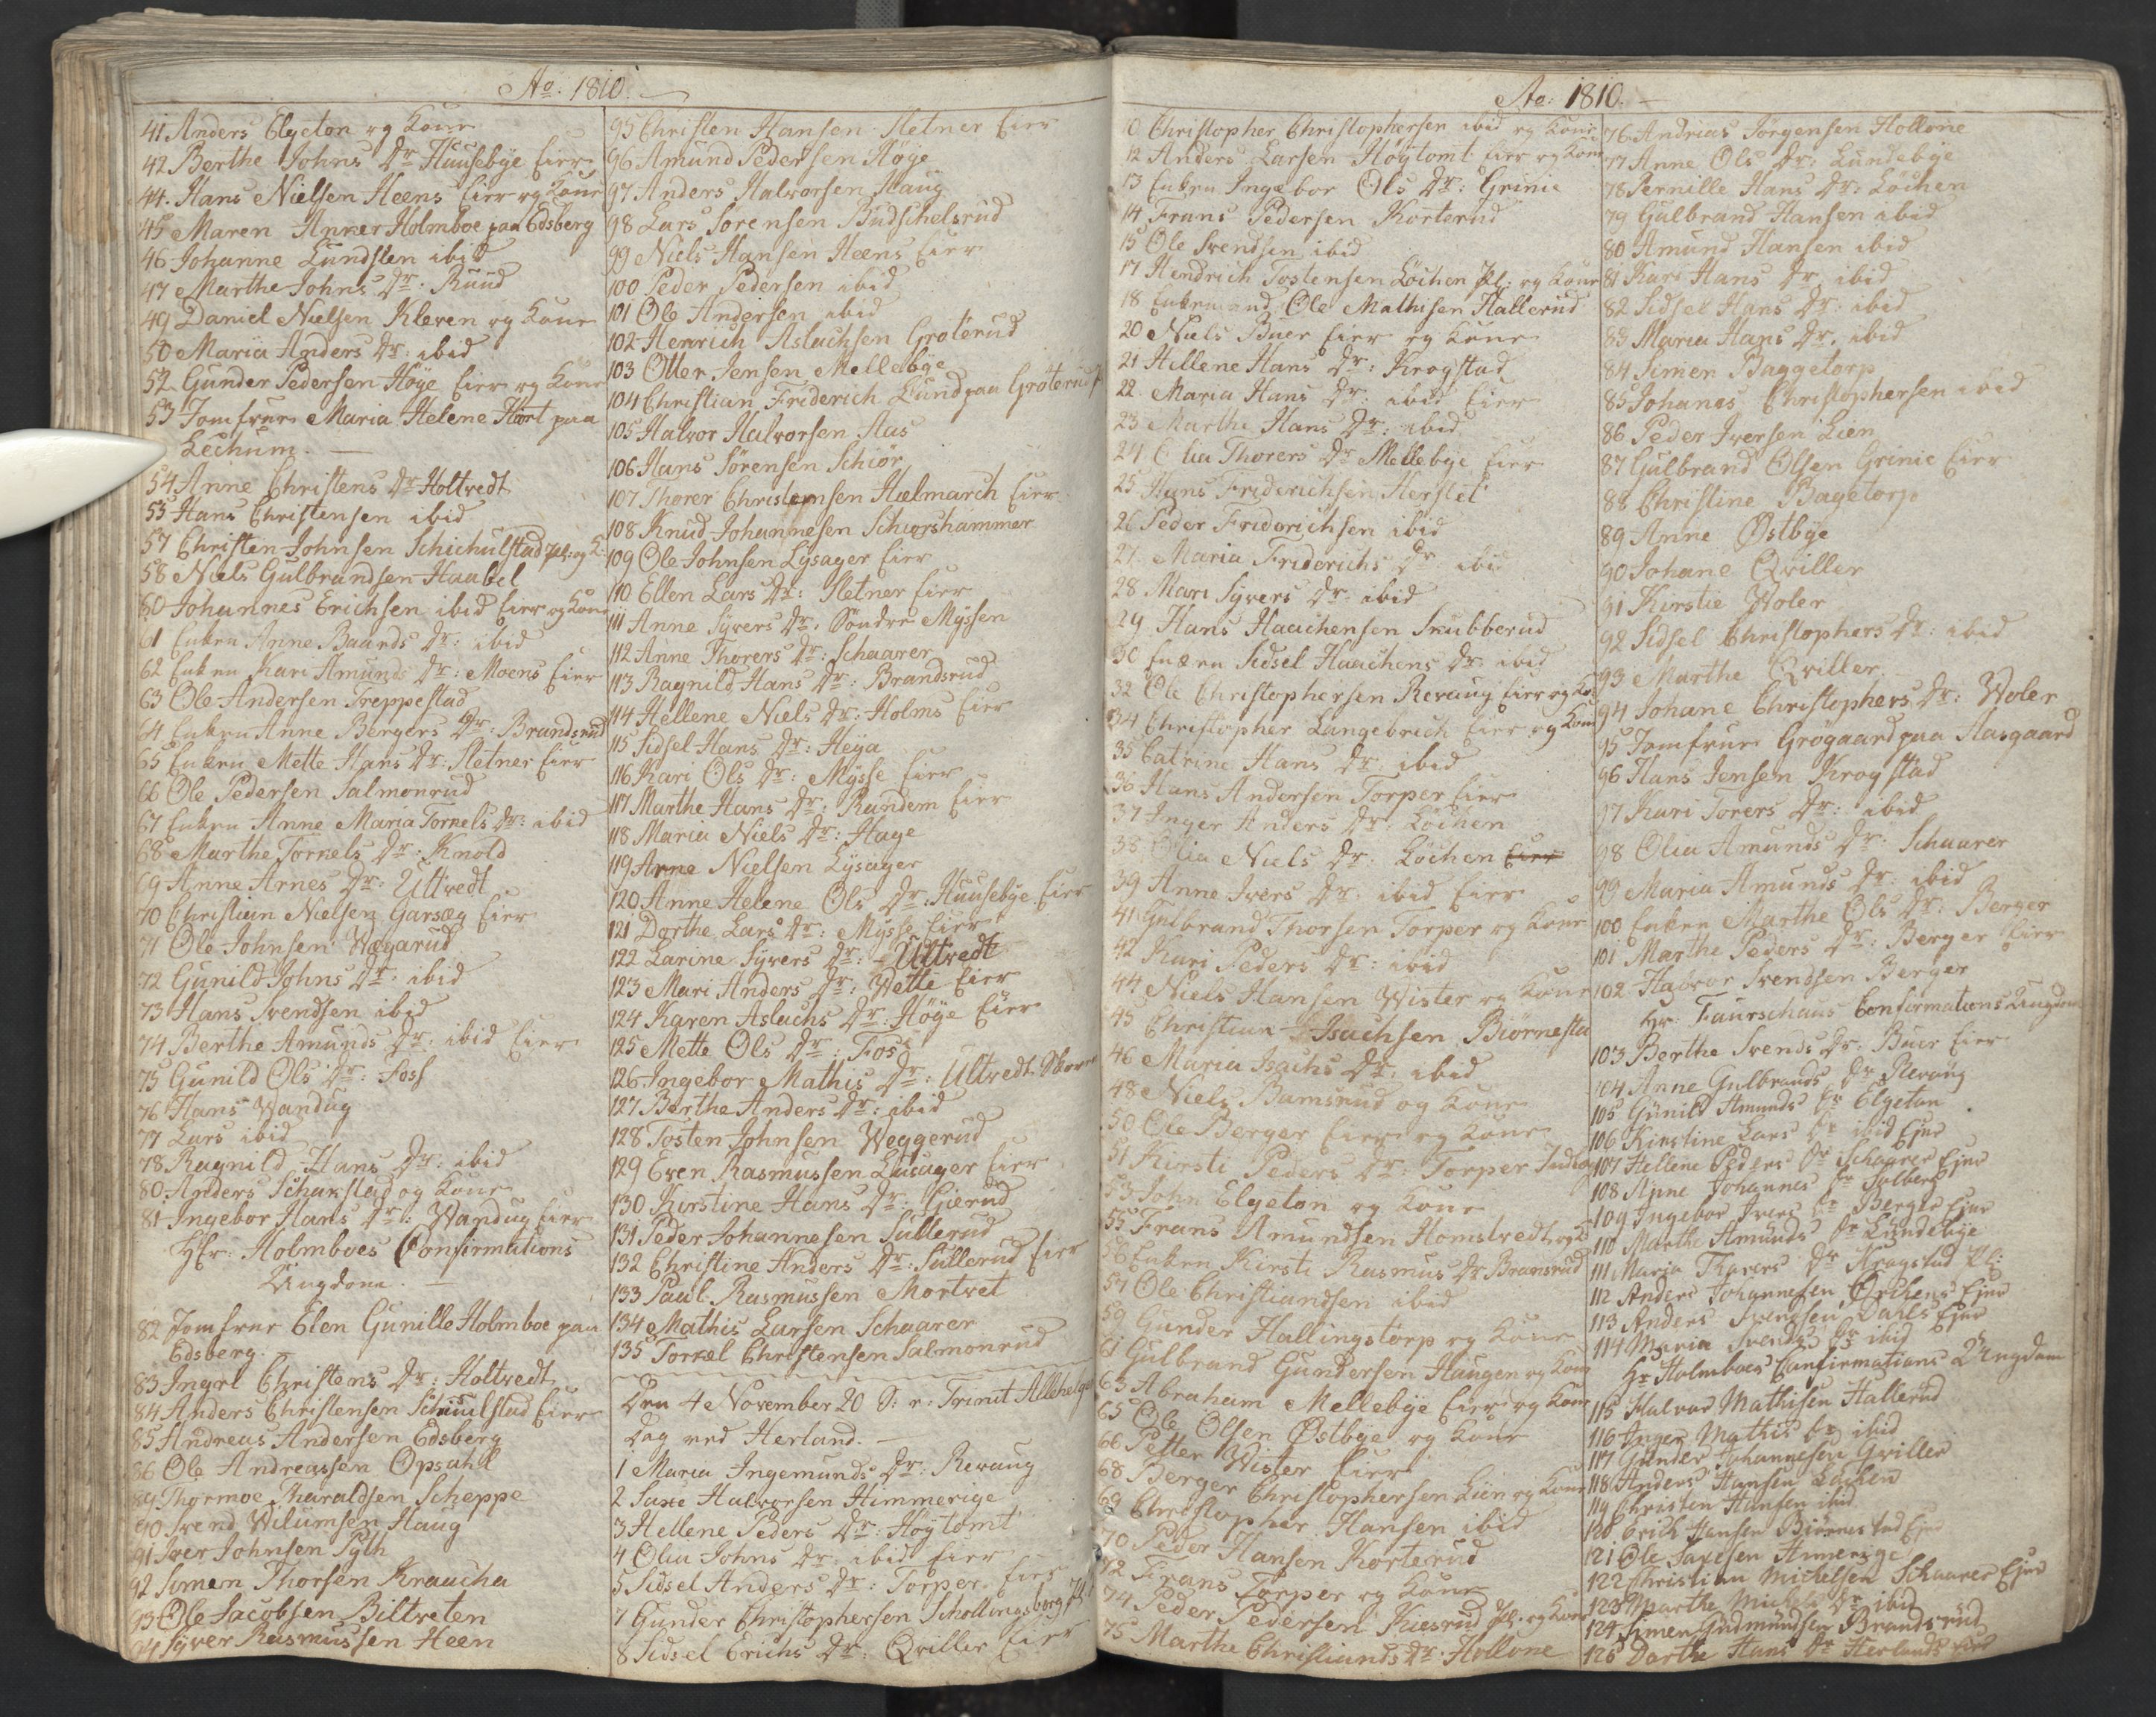 Ao. 1810.
41 Anders Elgeton og Kone
42 Berthe Johns Dr Huusebye Eier
44. Hans Nielsen Heens Eier og Kone
45 Maren Anker Holmboe paa Edsberg
46 Johanne Lundsten ibid
47 Marthe Johns Dr. Ruud
49 Daniel Nielsen Kleven og Kone
50 Maria Anders Dr: ibid
52 Gunder Pedersen Høye Eier og Kone
53 Jomfrue Maria Helene Hiort paa
Lechum.
54 Anne Christens Dr Holtvedt
55 Hans Christensen ibid
57 Christen Johnsen Schichulstad Pl: og K:
58 Niels Gulbrandsen Haabel
60 Johannes Erichsen ibid Eier og Kone
61 Enken Anne Baards Dr: ibid
62 Enken Kari Amunds Dr: Moens Eier
63 Ole Andersen Treppestad
64 Enken Anne Bergers Dr: Brandsrud
65 Enken Mette Hans Dr: Sletner Eier
66 Ole Pedersen Salmonrud
67 Enken Anne Maria Torkels Dr: ibid
68 Marthe Torkels Dr. Knold
69 Anne Arnes Dr: Ultvedt
70 Christian Nielsen Garsæg Eier
71 Ole Johnsen Wægarud
72 Gunild Johns Dr: ibid
73 Hans Svendsen ibid
74 Berthe Amunds Dr: ibid Eier
75 Gunild Ols Dr: Foss
76 Hans Wandug
77 Lars ibid
78 Ragnild Hans Dr: ibid
80. Anders Schakstad og Kone
81 Ingebor Hans Dr: Wandug Eier
Hr: Holmboes Confirmations
Ungdom.
82 Jomfrue Elen Gunille Holmboe paa
Edsberg.
83 Ingri Christens Dr: Holtvedt
84 Anders Christensen Schiulstad Eier
85 Andreas Andersen Edsberg
86 Ole Andreassen Opsahl
89 Thormoe Tharaldsen Scheppe
90 Svend Wilumsen Haug
91 Iver Johnsen Sylh
92 Simen Thorsen Kraacha
93 Ole Jacobsen Biltveten
94 Syver Rasmussen Heen
95 Christen Hansen Sletner Eier
96 Amund Pedersen Høye
97 Anders Halvorsen Haug
98 Lars Sørensen Budschelsrud
99 Niels Hansen Heens Eier
100 Peder Pedersen ibid
101 Ole Andersen ibid
102 Henrich Aslachsen Groterud
103 Otter Jensen Mellebye
104 Christian Friderich Lund paa Groterud
105 Halvor Halvorsen Aas
106 Hans Sørensen Schiør
107 Thorer Christensen Hælmarch Eier
108 Knud Johannesen Schiørshammer
109 Ole Johnsen Lysager Eier
110 Ellen Lars Dr: Sletner Eier
111 Anne Syvers Dr. Søndre Myssen
112 Anne Thorers Dr: Schaarer
113 Ragnild Hans Dr: Brandsrud
114 Hellene Niels Dr: Holms Eier
115 Sidsel Hans Dr: Heya
116 Kari Ols Dr: Mysse Eier
117 Marthe Hans Dr. Randem Eier
118 Maria Niels Dr: Hage
119 Arne Nielsen Lysager
120 Anne Helene Ols Dr: Huusebye Eier
121 Dorthe Lars Dr: Mysse Eier
122 Larine Syvers Dr: Ultvedt
123 Mari Anders Dr: Wette Eier
124 Karen Aslachs Dr: Høye Eier
125 Mette Ols Dr: Fos
126 Ingebor Mathis Dr: Ultvedt
127 Berthe Anders Dr: ibid
128 Tosten Johnsen Weggerud
129 Even Rasmussen Lusager Eier
130 Kirstine Hans Dr: Gierud
131 Peder Johannesen Sullerud
132 Christine Anders Dr: Sullerud Eier
133 Paul Rasmussen Mortvet
134 Mathis Larsen Schaarer
135 Torkel Christensen Salmonrud
Den 4 November 20 S: e: Trinit Allehelgen
Dag ved Herland.
1 Maria Ingemunds Dr: Revaug
2 Saxe Halvorsen Himmerige
3 Hellene Peders Dr: Høytomt
4 Olia Johns Dr. ibid Eier
5 Sidsel Anders Dr: Torper Eier
7 Gunder Christophersen Schollingsborg
8 Sidsel Erichs Dr: Qviller Eier
Ao: 1810.
10 Christopher Christophersen ibid og Kone
12 Anders Larsen Høytomt Eier og Kone
13 Enken Ingebor Ols Dr: Grinie
14 Frans Pedersen Korterud
15 Ole Svendsen ibid
17 Hendrich Tostensen Løchen Pl: og Kone
18 Enkemand Ole Mathisen Hallerud
20 Niels Buer Eier og Kone
21 Hellene Hans Dr: Krogstad
22 Maria Hans Dr: ibid Eier
23 Marthe Hans Dr: ibid
24 Olia Thorers Dr Mellebye Eier
25 Hans Friderichsen Herslet
26 Peder Friderichsen ibid
27 Maria Friderichs Dr ibid
28 Mari Syvers Dr. ibid
29 Hans Haachensen Skubberud
30 Enken Sidsel Haachens Dr: ibid
32 Ole Christophersen Revaug Eier og Ko
34 Christopher Langebrech Eier og Kone
35 Catrine Hans Dr: ibid
36 Hans Andersen Torper Eier
37 Inger Anders Dr: Løchen
38 Olia Niels Dr: Løchen Eier
39 Anne Ivers Dr: ibid Eier
41 Gulbrand Thorsen Torper og Kone
42 Kari Peders Dr: ibid
44 Niels Hansen Wister og Kone
45 Christian Isachsen Biørnesta
46 Maria Isachs Dr: ibid
48 Niels Bamsrud og Kone
50 Ole Berger Eier og Kone
51 Kirsti Peders Dr: Torper
53 John Elgeton og Kone
55 Frans Amundsen Homstvedt og K
56 Enken Kirsti Rasmus Dr Bransrud
57 Ole Christiandsen ibid
59 Gunder Hallingstorp og Kone
61 Gulbrand Gundersen Haugen og Kone
63 Abraham Mellebye Eier og Kone
65 Ole Olsen Østbye og Kone
66 Petter Wister Eier
68 Berger Christophersen Lien og Kone
69 Christopher Hansen ibid
70 Peder Hansen Korterud
72 Frans Torper og Kone
74 Peder Pedersen Kiesrud Pl. og Kone
75 Marthe Christiands Dr: Hollone
76 Andrias Jørgensen Hollone
77 Anne Ols Dr: Lundebye
78 Pernille Hans Dr: Løchen
79 Gulbrand Hansen ibid
80 Amund Hansen ibid
81 Kari Hans Dr. ibid
82 Sidsel Hans Dr: ibid
83 Maria Hans Dr. ibid
84 Simen Baggetorp
85 Johanes Christophersen ibid
86 Peder Iversen Lien
87 Gulbrand Olsen Grinie Eier
88 Christine Bagetorp
89 Anne Østbye
90 Johane Qviller
91 Kirstie Woler
92 Sidsel Christophers Dr: ibid
93 Marthe Qviller
94 Johane Christophers Dr: Woler
95 Jomfrue Grøgaard paa Aasgaard
96 Hans Jensen Krogstad
97 Kari Torers Dr: ibid
98 Olia Amunds Dr: Schaarer
99 Maria Amunds Dr: ibid
100 Enken Marthe Ols Dr: Berger
101 Marthe Peders Dr: Berger Eier
102 Havor Svendsen Berger
Hr: Faurschaus Confirmations Ungdom
103 Berthe Svends Dr: Buer Eier
104 Anne Gulbrands Dr Revaug
105 Gunild Amunds Dr Elgeton
106 Kirstine Lars Dr ibid Ejer
107 Hellene Peders Dr Schaarer Ejer
108 Anne Johannes Dr Solberg
109 Ingebor Ivers Dr Berger Ejer
110 Marthe Amunds Dr Lundebye
111 Maria Thorers Dr Kragstad Pl:
112 Anders Johannesen Ørchens Ejer
113 Anders Svendsen Dahls Ejer
114 Maria Svends Dr ibid
Hr Holmboes Confirmations Ungdom
115 Halvor Mathisen Hallerud
116 Inger Mathis Dr ibid
117 Gunder Johannesen Qviller
118 Anders Hansen Løchen
119 Christen Hansen ibid
120 Erich Hansen Biørnestad Ejer
121 Ole Saxesen Himerige
122 Christian Michelsen Schaarer Ejer
123 Marthe Michels Dr ibid
124 Simen Gudmundsen Brandsrud
126 Dorthe Hans Dr Herlands Ejer